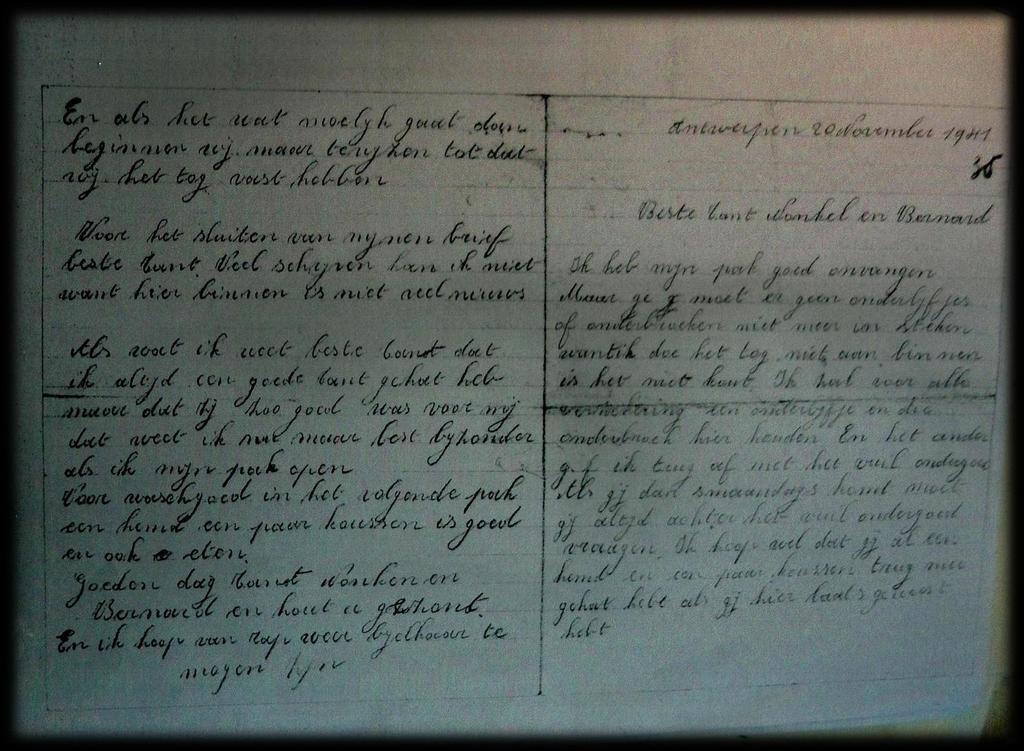 Antwerpen 20 November 1941
36
Beste tant Nonkel en Bernard
Ik heb mijn pak goed onvangen
Maar ge moet er geen onderlijfjes
of onderbroeken niet meer in steken
want ik doe het tog niet aan binnen
is het niet kout. Ik zal voor alle
verzekering een onderlijfje en die
onderbroek hier houden En het ander
gif ik trug af met het vuil ondergoed
Als gij dan smaandags komt moet
gij altijd achter het vuil ondergoed
vraagen. Ik hoop wel dat gij al een
hemd en een paar koussen trug mee
gehat hebt als gij hier laats geweest
hebt
En als het wat moelijk gaat dan
beginnen wij maar terug tot dat
wij het tog vast hebben
Voor het sluiten van mijnen brief
beste tant. Veel schijven kan ik niet
want hier binnen is niet veel nieuws
Als wat ik weet beste tant dat
ik altijd een goede tant gehat heb
maar dat zij zoo goed was voor mij
dat weet ik nu maar best byzonder
als ik mijn pak open
Voor waschgoed in het volgende pak
een hemd een paar koussen is goed
en ook eten.
Goeden dag tant Nonken en
Bernard en hout u gezont.
En ik hoop van rap weer byelkaar te
mogen zijn